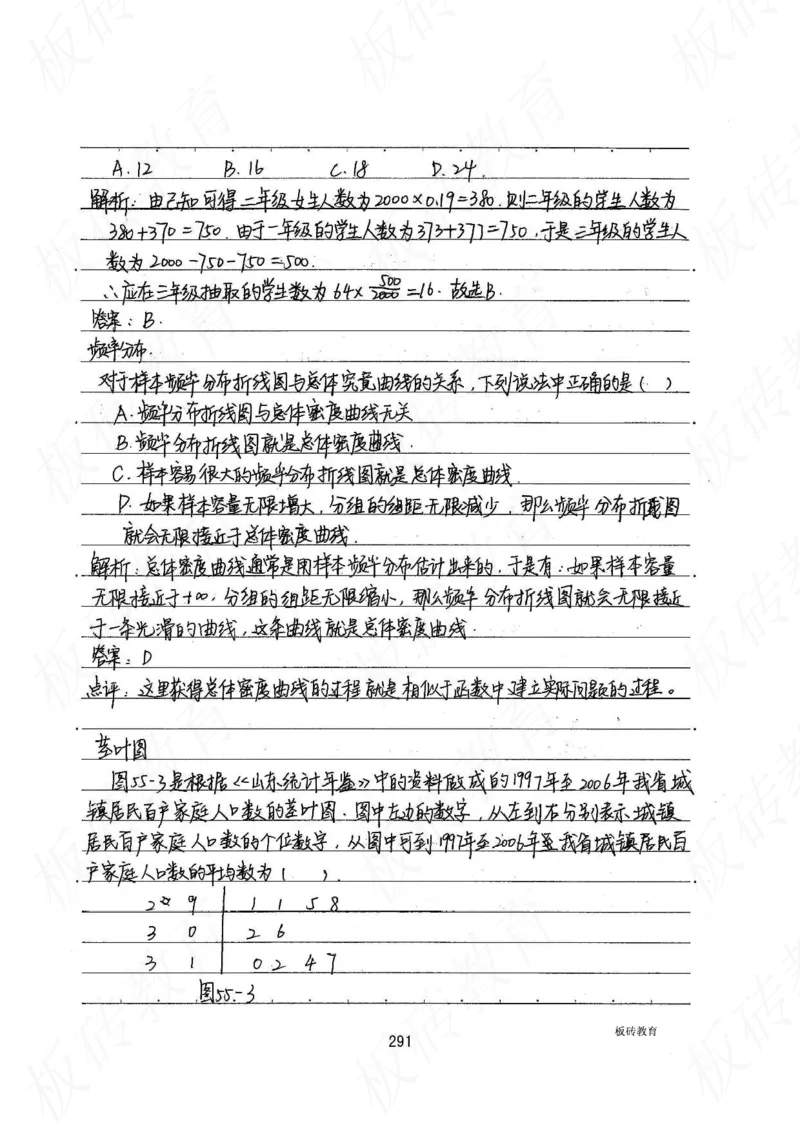 A.12 B.16 C.18 D.24.
解析:由己知可得二年级女生人数为2000×0.19=380.则二年级的学生人数为
380+370=750.由于一年级的学生人数为373+377=750,于是三年级的学生人
数为2000-750-750=500.
∴应在三年级抽取的学生数为64×500/2000=16.故选B.
答案:B.
频率分布.
对于样本频率分布折线图与总体密度曲线的关系,下列说法中正确的是( )
A.频率分布折线图与总体密度曲线无关
B.频率分布折线图就是总体密度曲线.
C.样本容易很大的频率分布折线图就是总体密度曲线.
D.如果样本容量无限增大,分组的组距无限减少,那么频率分布折线图
就会无限接近于总体密度曲线.
解析:总体密度曲线通常是用样本频率分布估计出来的,于是有:如果样本容量
无限接近于+∞,分组的组距无限缩小,那么频率分布折线图就会无限接近
于一条光滑的曲线,这条曲线就是总体密度曲线.
答案:D
点评:这里获得总体密度曲线的过程就是相似于函数中建立实际问题的过程。
茎叶图
图55-3是根据<<山东统计年鉴>>中的资料做成的1997年至2006年我省城
镇居民百户家庭人口数的茎叶图.图中左边的数字,从左到右分别表示城镇
居民百户家庭人口数的个位数字,从图中可到1997年至2006年至我省城镇居民百
户家庭人口数的平均数为( ).
2 9 1 1 5 8
3 0 2 6
3 1 0 2 4 7
图55-3
291
板砖教育